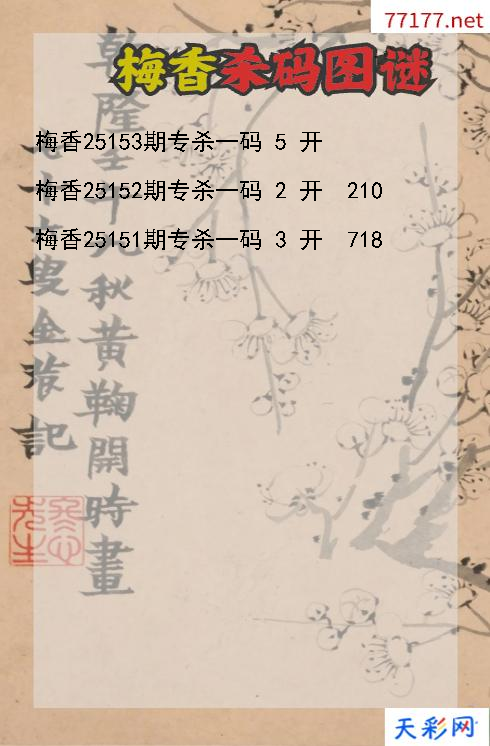 77177.net
梅香杀码图谜
梅香25153期专杀一码 5 开
梅香25152期专杀一码 2 开 210
梅香25151期专杀一码 3 开 718
乾隆
秋黄鞠開時畫
叟金農記
天彩网